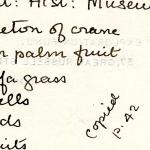 Nat: Hist: Museum
eton of crane
palm fruit
f a grass
ells
ds
uits
Copied
p. 42